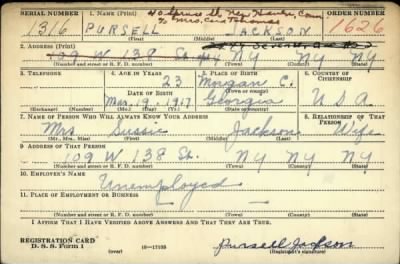 REGISTRATION CARD
SERIAL NUMBER 1. NAME (Print) ORDER NUMBER
40 Spruce St New Haven, Conn
% Mrs.
1316 PURSELL JACKSON 1626
(First) (Middle) (Last)
2. ADDRESS (Print)
109 W 138 St NY NY NY
(Number and street or R. F. D. number) (Town) (County) (State)
3. TELEPHONE 4. AGE IN YEARS 5. PLACE OF BIRTH 6. COUNTRY OF CITIZENSHIP
23 Morgan C.
DATE OF BIRTH (Town or county)
Mar. 19, 1917 Georgia U S A
(Exchange) (Number) (Mo.) (Day) (Yr.) (State or country)
7. NAME OF PERSON WHO WILL ALWAYS KNOW YOUR ADDRESS 8. RELATIONSHIP OF THAT PERSON
Mrs Sussie Jackson Wife
(Mr., Mrs., Miss) (First) (Middle) (Last)
9. ADDRESS OF THAT PERSON
109 W 138 St. NY NY NY
(Number and street or R. F. D. number) (Town) (County) (State)
10. EMPLOYER'S NAME
Unemployed
11. PLACE OF EMPLOYMENT OR BUSINESS
(Number and street or R. F. D. number) (Town) (County) (State)
I AFFIRM THAT I HAVE VERIFIED ABOVE ANSWERS AND THAT THEY ARE TRUE.
REGISTRATION CARD
D. S. S. Form 1 (over) 16—17105 Pursell Jackson
(Registrant's signature)